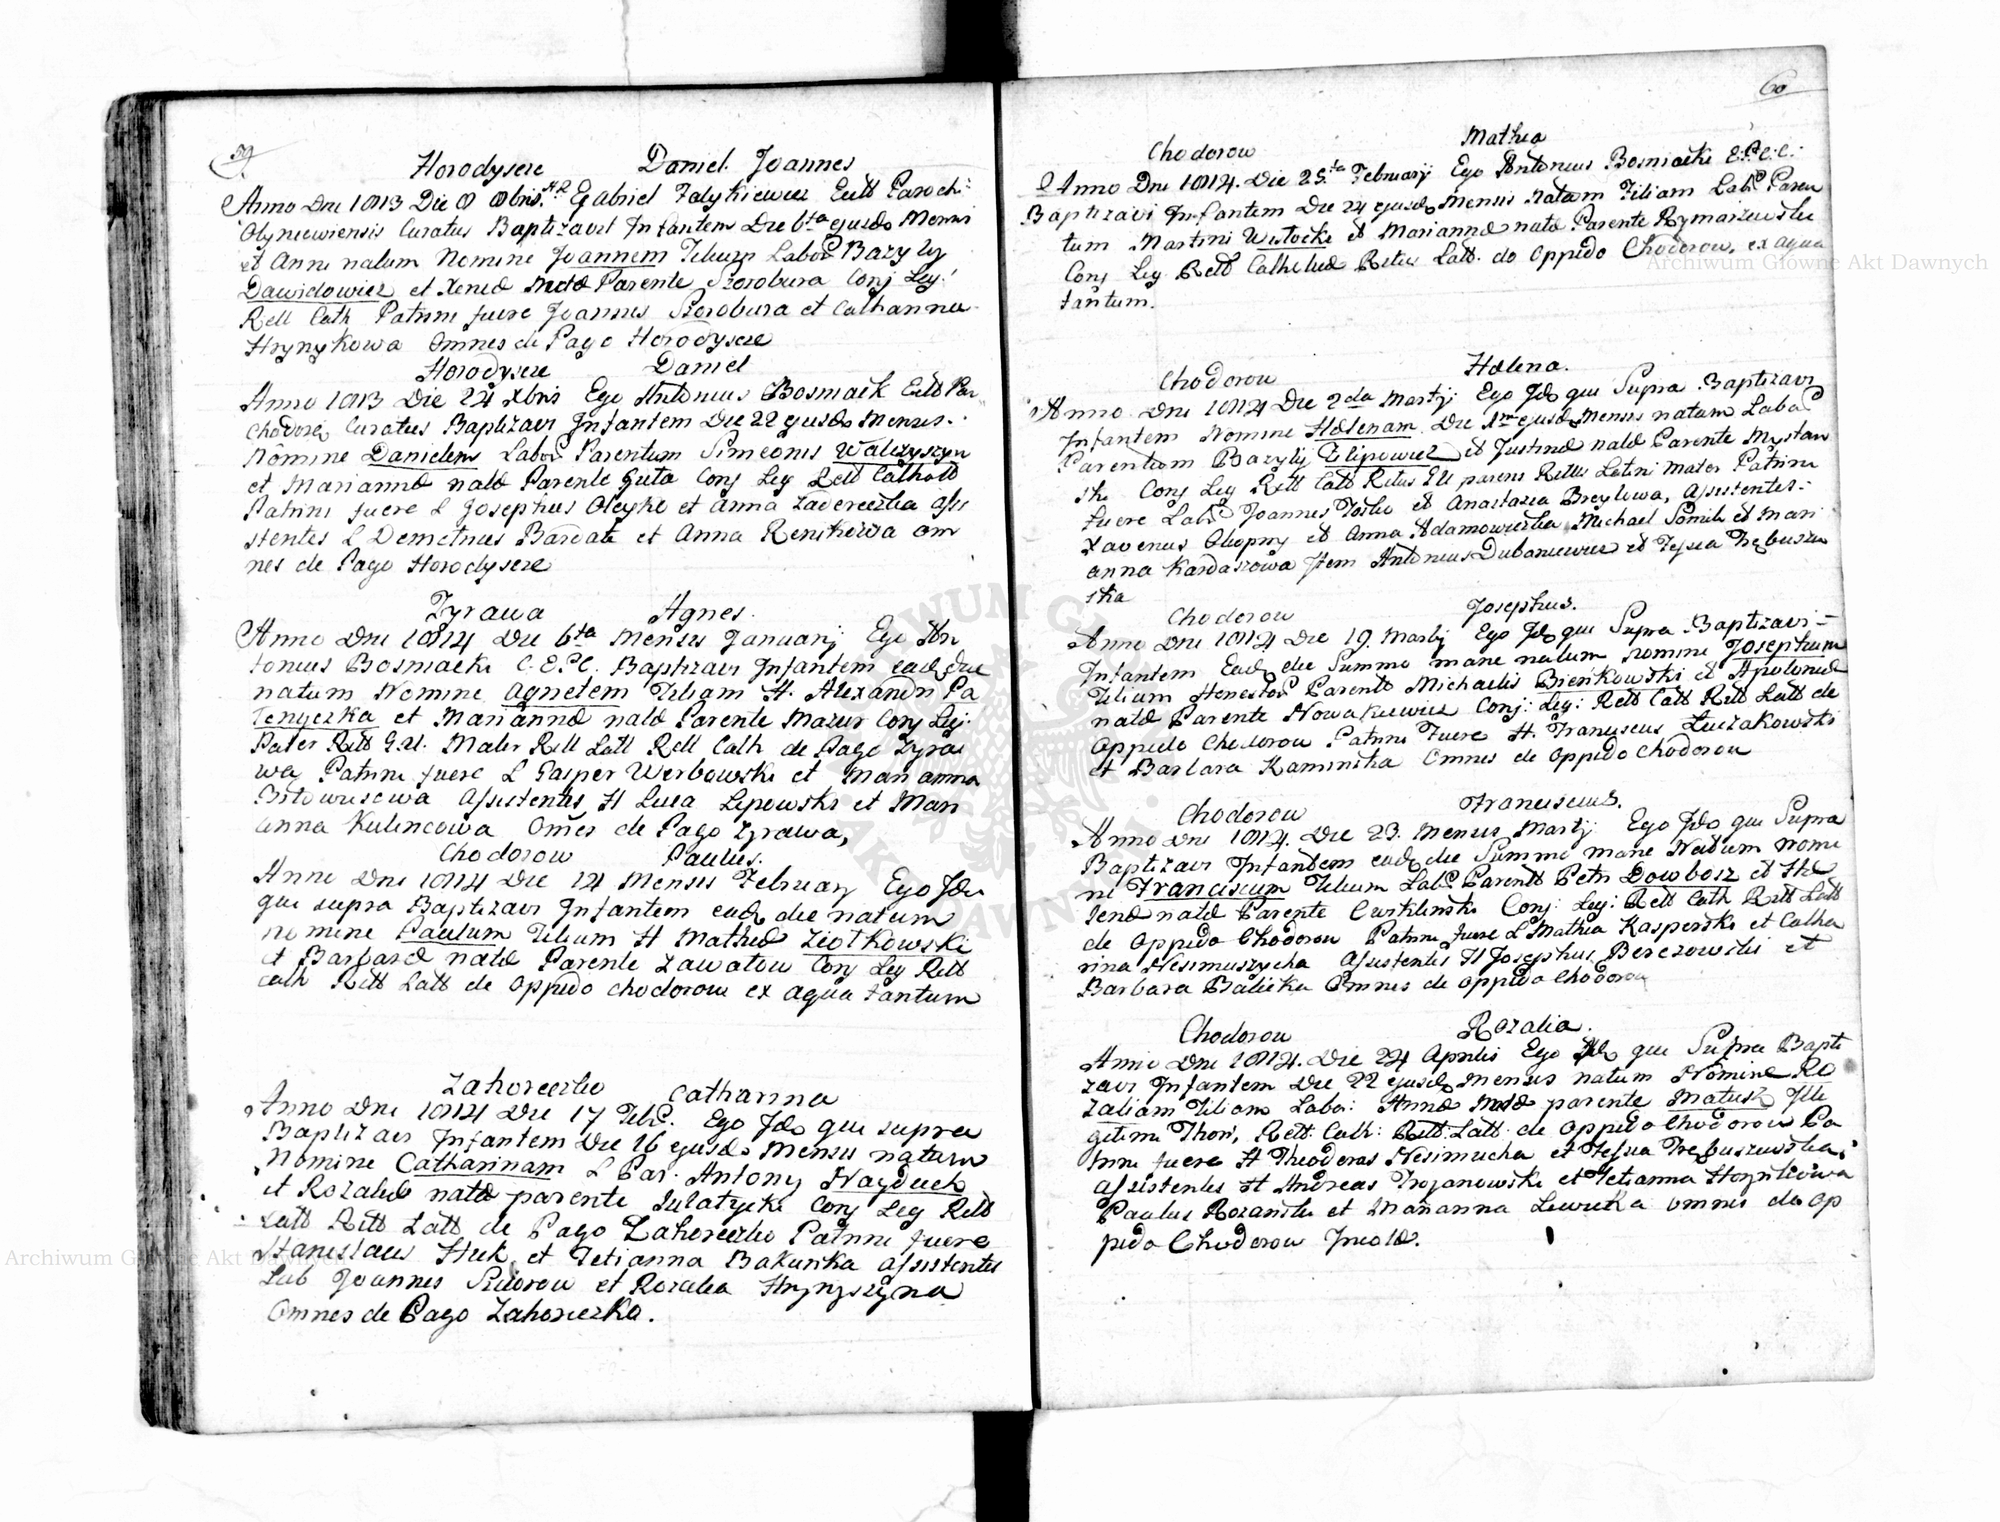 59
Horodysze Daniel Joannes
Anno Dni 1813 Die 8 8bris Gabriel Falykiewicz Ecctt Paroch:
Olyniewiensis Curatus Baptizavit Infantem Die 6ta ejusdo Mensi
et Anni natum Nomine Joannem Filium Labor Bazyly
Dawidowicz et Xenia nata Parente Storobura Conj Leg:
Rell Cath Patrini fuere Joannes Storobura et Catharina
Hrynykowa Omnes de Pago Horodysze
Horodysze Daniel
Anno 1813 Die 24 Xbris Ego Antonius Bosniack Ecctt Par
Chodoro Curatus Baptizavi Infantem Die 22 ejusdo Mensis
Nomine Danielem Labor Parentum Simeonis Walczyszyn
et Marianna nata Parente Guta Conj Leg Rell Catholl
Patrini fuere L Josephus Oleyko et Anna Zadereczka assi
stentes L Demetrius Bardati et Anna Renikowa om
nes de Pago Horodysze
Zyrawa Agnes.
Anno Dni 1814 Die 6ta Mensis Januarij Ego An
tonius Bosniacki C.E.P.C. Baptizavi Infantem ead die
natum Nomine Agnetem Filiam H. Alexandri Pa
Tenyczka et Marianna nata Parente Mazur Conj Leg
Pater Ritt G.U. Mater Ritt Latt Rell Cath de Pago Zyra
wa Patrini fuere L Gasper Werbowski et Marianna
assistentes H Luca Lipowski et Mari
anna Kulincowa Omes de Pago Zyrawa,
Chodorow Paulus.
Anno Dni 1814 Die 14 Mensis February Ego Ido
qui supra Baptizavi Infantem ead die natum
nomine Paulum Filium H Mathea Ziotkowski
et Barbara nata Parente Zawatow Conj Leg Rell
Cath Ritt Latt de Oppido Chodorow ex aqua tantum
Zahoreczko Catharina
Anno Dni 1814 Die 17 Febr. Ego Ido qui supra
Baptizavi Infantem Die 16 ejusdo Mensis natam
Nomine Catharinam L Par. Antony Nayduch
et Rozalia nata parente Sulatycki Conj Leg Rell
Catt Ritt Latt de Pago Zahoreczko Patrini fuere
Stanislaus Huk et Tetianna Bakunka assistentes
Lab Joannes Sidorow et Rozalia Hrynyszyna
Omnes de Pago Zahoreczko.
60
Chodorow Mathia
Anno Dni 1814. Die 25ta February Ego Antonius Bosniacki E.P.C.C.
Baptizavi Infantem Die 24 ejusdo Mensis Natam Filiam Labo Paren
tum Martini Wistocki et Marianna nata Parente Rymarzewski
Conj Leg Rell Catholica Ritus Latt. de Oppido Chodorow, ex aqua
tantum.
Chodorow Helena.
Anno Dni 1814 Die 2da Martij Ego Ido qui Supra Baptizavi
Infantem Nomine Helenam Die 1ma ejusd Mensis natam Labo
Parentum Bazylij Filipowicz et Justina nata Parente Mystan
ski Conj Leg Rell Catt Ritus parens Ritus Latini Mater Patrini
fuere Labo Joannes et Anastazia Breylowa, assistentes
Xaverius Okopny et Anna Adamowiczka Michael Somik et Mari
anna Kardaszowa Item Antonius Dubaniewicz et Tessia Trębuszew
ska
Chodorow Josephus.
Anno Dni 1814 Die 19. Martij Ego Ido qui Supra Baptizavi
Infantem Ead die Summo mane natum nomine Josephum
Filium Honestor Parentt Michaelis Bieńkowski et Apolonia
nata Parente Nowakiewicz Conj: Leg: Rell Catt Ritt Latt de
Oppido Chodorow Patrini Fuere H. Franciscus Luczakowski
et Barbara Kaminska Omnes de Oppido Chodorow
Chodorow Franciscus.
Anno Dni 1814. Die 23. Mensis Martij Ego Ido qui Supra
Baptizavi Infantem ead die Summo mane Natum nomi
ne Franciscum Filium Labo Parentt Petri Dowbosz et He
lena nata Parente Cwiklinski Conj: Leg: Rell Cath Ritt Latt
de Oppido Chodorow Patrini fuere L Mathia Kasperski et Catha
rina Nesimuszycha assistentes H Josephus Berezowski et
Barbara Balicka Omnes de Oppido Chodorow
Chodorow Rozalia.
Anno Dni 1814. Die 24 Aprilis Ego Ido qui Supra Bapti
zavi Infantem Die 22 ejusdo Mensis natum Nomine Ro
zaliam Filiam Labor: Anna nata parente Matush Ille
gitimi Thori, Rell: Cath: Ritt: Latt: de Oppido Chodorow Pa
trini fuere H Theodoras Nesimucha et Tessia Trębuszewska
assistentes H Andreas Trojanowski et Tetianna Hrynkowa
Paulus Rozanski et Marianna Lewicka omnes de Op
pido Chodorow Incolæ.
Archiwum Główne Akt Dawnych
Archiwum Główne Akt Dawnych
ARCHIWUM GŁÓWNE AKT DAWNYCH